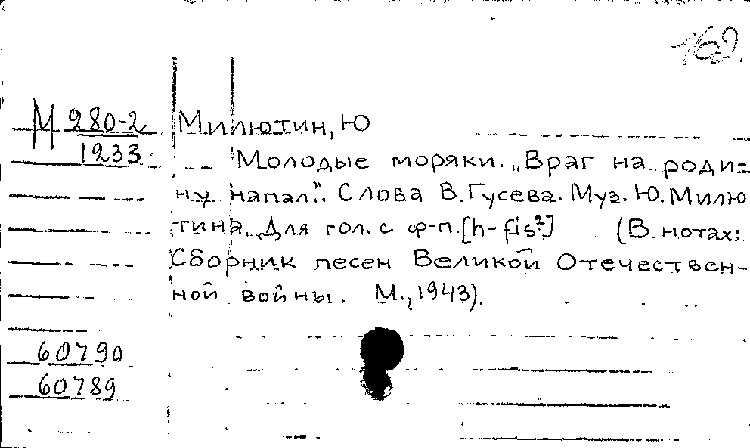 169.
М 280-2
1233
Милютин, Ю
Молодые моряки. „Враг на роди-
ну напал". Слова В. Гусева. Муз. Ю. Милю
тина. Для гол. с ф-п. [h-fis²] (В нотах:
Сборник песен Великой Отечествен-
ной войны. М., 1943).
60790
60789